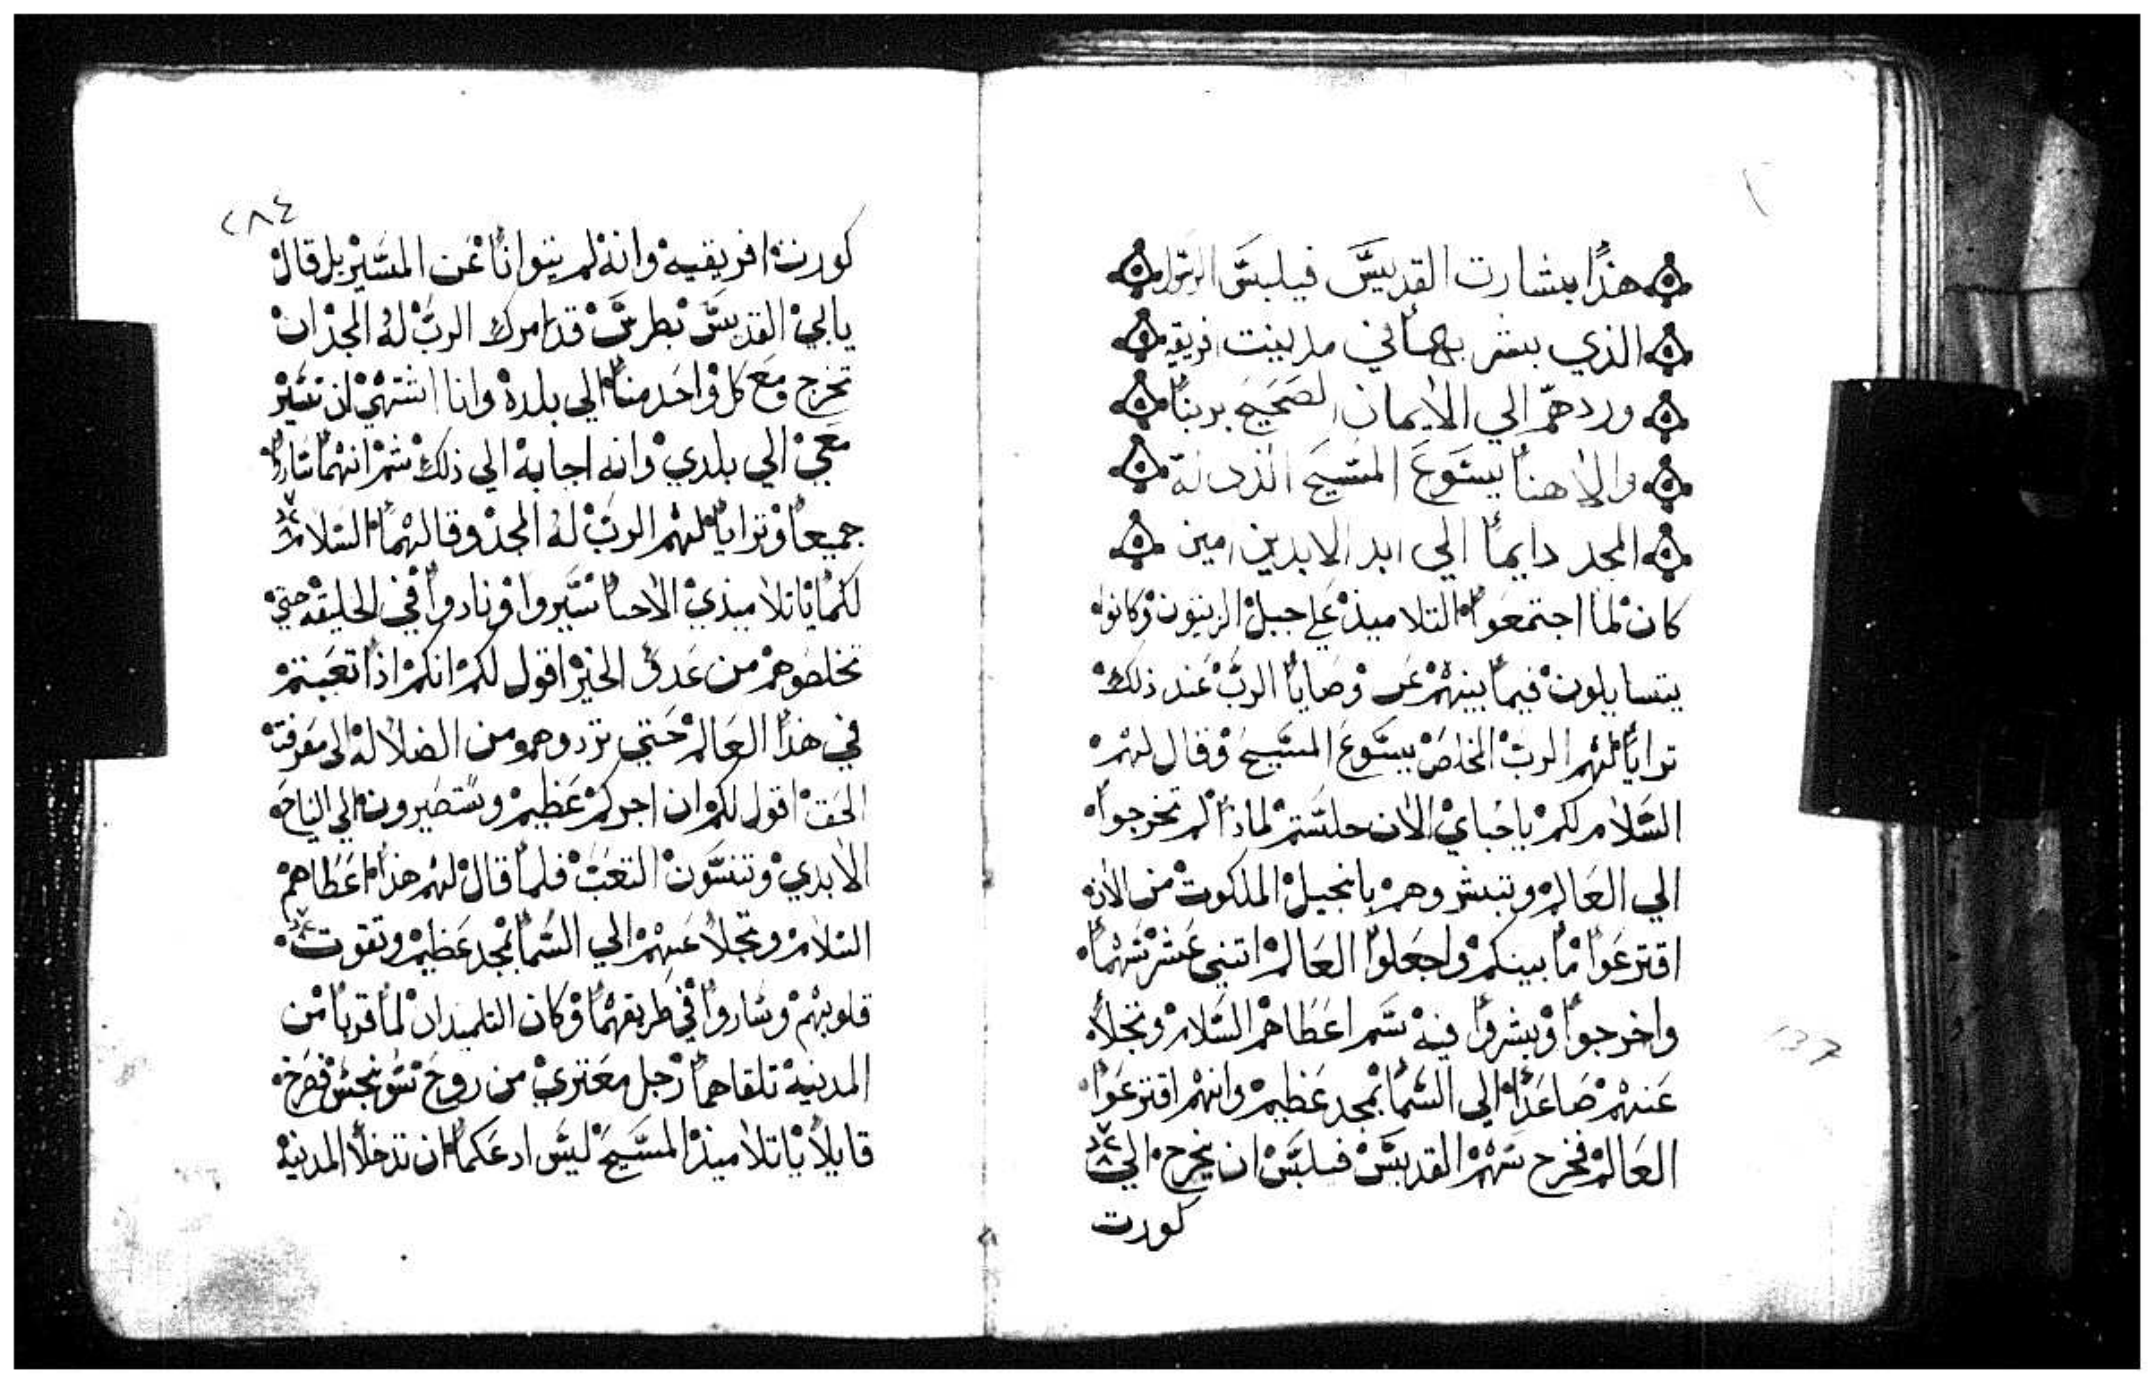 هذا بشارت القديس فيلبس الرسول
الذي بشر بها في مدينت افريقيه
وردهم الي الايمان الصحيح بربنا
والاهنا يسوع المسيح الذي له
المجد دايما الي ابد الابدين امين
كان لما اجتمعوا التلاميذ علي جبل الزيتون وكانوا
يتسايلون فيما بينهم عن وصايا الرب عند ذلك
ترايا لهم الرب المخلص يسوع المسيح وقال لهم
السلام لكم ياحباي الان جلستم لماذا لم تخرجوا
الي العالم وتبشروهم بانجيل الملكوت من الان
اقترعوا ما بينكم واجعلوا العالم اتني عشر سهما
واخرجوا وبشروا فيه تم اعطاهم السلام وتجلا
عنهم صاعدا الي السما بمجد عظيم وانهم اقترعوا
العالم فخرج سهم القديس فيلبس ان يخرج الي
كورت
٢٨٤
كورت افريقيه وانه لم يتوانا عن المسير بل قال
يا ابي القديس بطرس قد امرك الرب له المجد ان
تخرج مع كل واحد منا الي بلده وانا اشتهي ان تسير
معي الي بلدي وانه اجابه الي ذلك تم انهما ساروا
جميعا وترايا لهم الرب له المجد وقال لهما السلام
لكما ياتلاميذي الاحبا سيروا ونادوا في الخليقه حتي
تخلصوهم من عدو الخير اقول لكم انكم اذا تعبتم
في هذا العالم حتي تردوهم من الضلاله الي معرفة
الحق اقول لكم ان اجركم عظيم وستصيرون الي النياح
الابدي وتنسون التعب فلما قال لهم هذا اعطاهم
السلام وتجلا عنهم الي السما بمجد عظيم وتقوت
قلوبهم وساروا في طريقهما وكان التلميذان لما قربا من
المدينه تلقاهما رجل معتري من روح نجس فصرخ
قايلا ياتلاميذ المسيح ليس ادعكما ان تدخلا المدينه